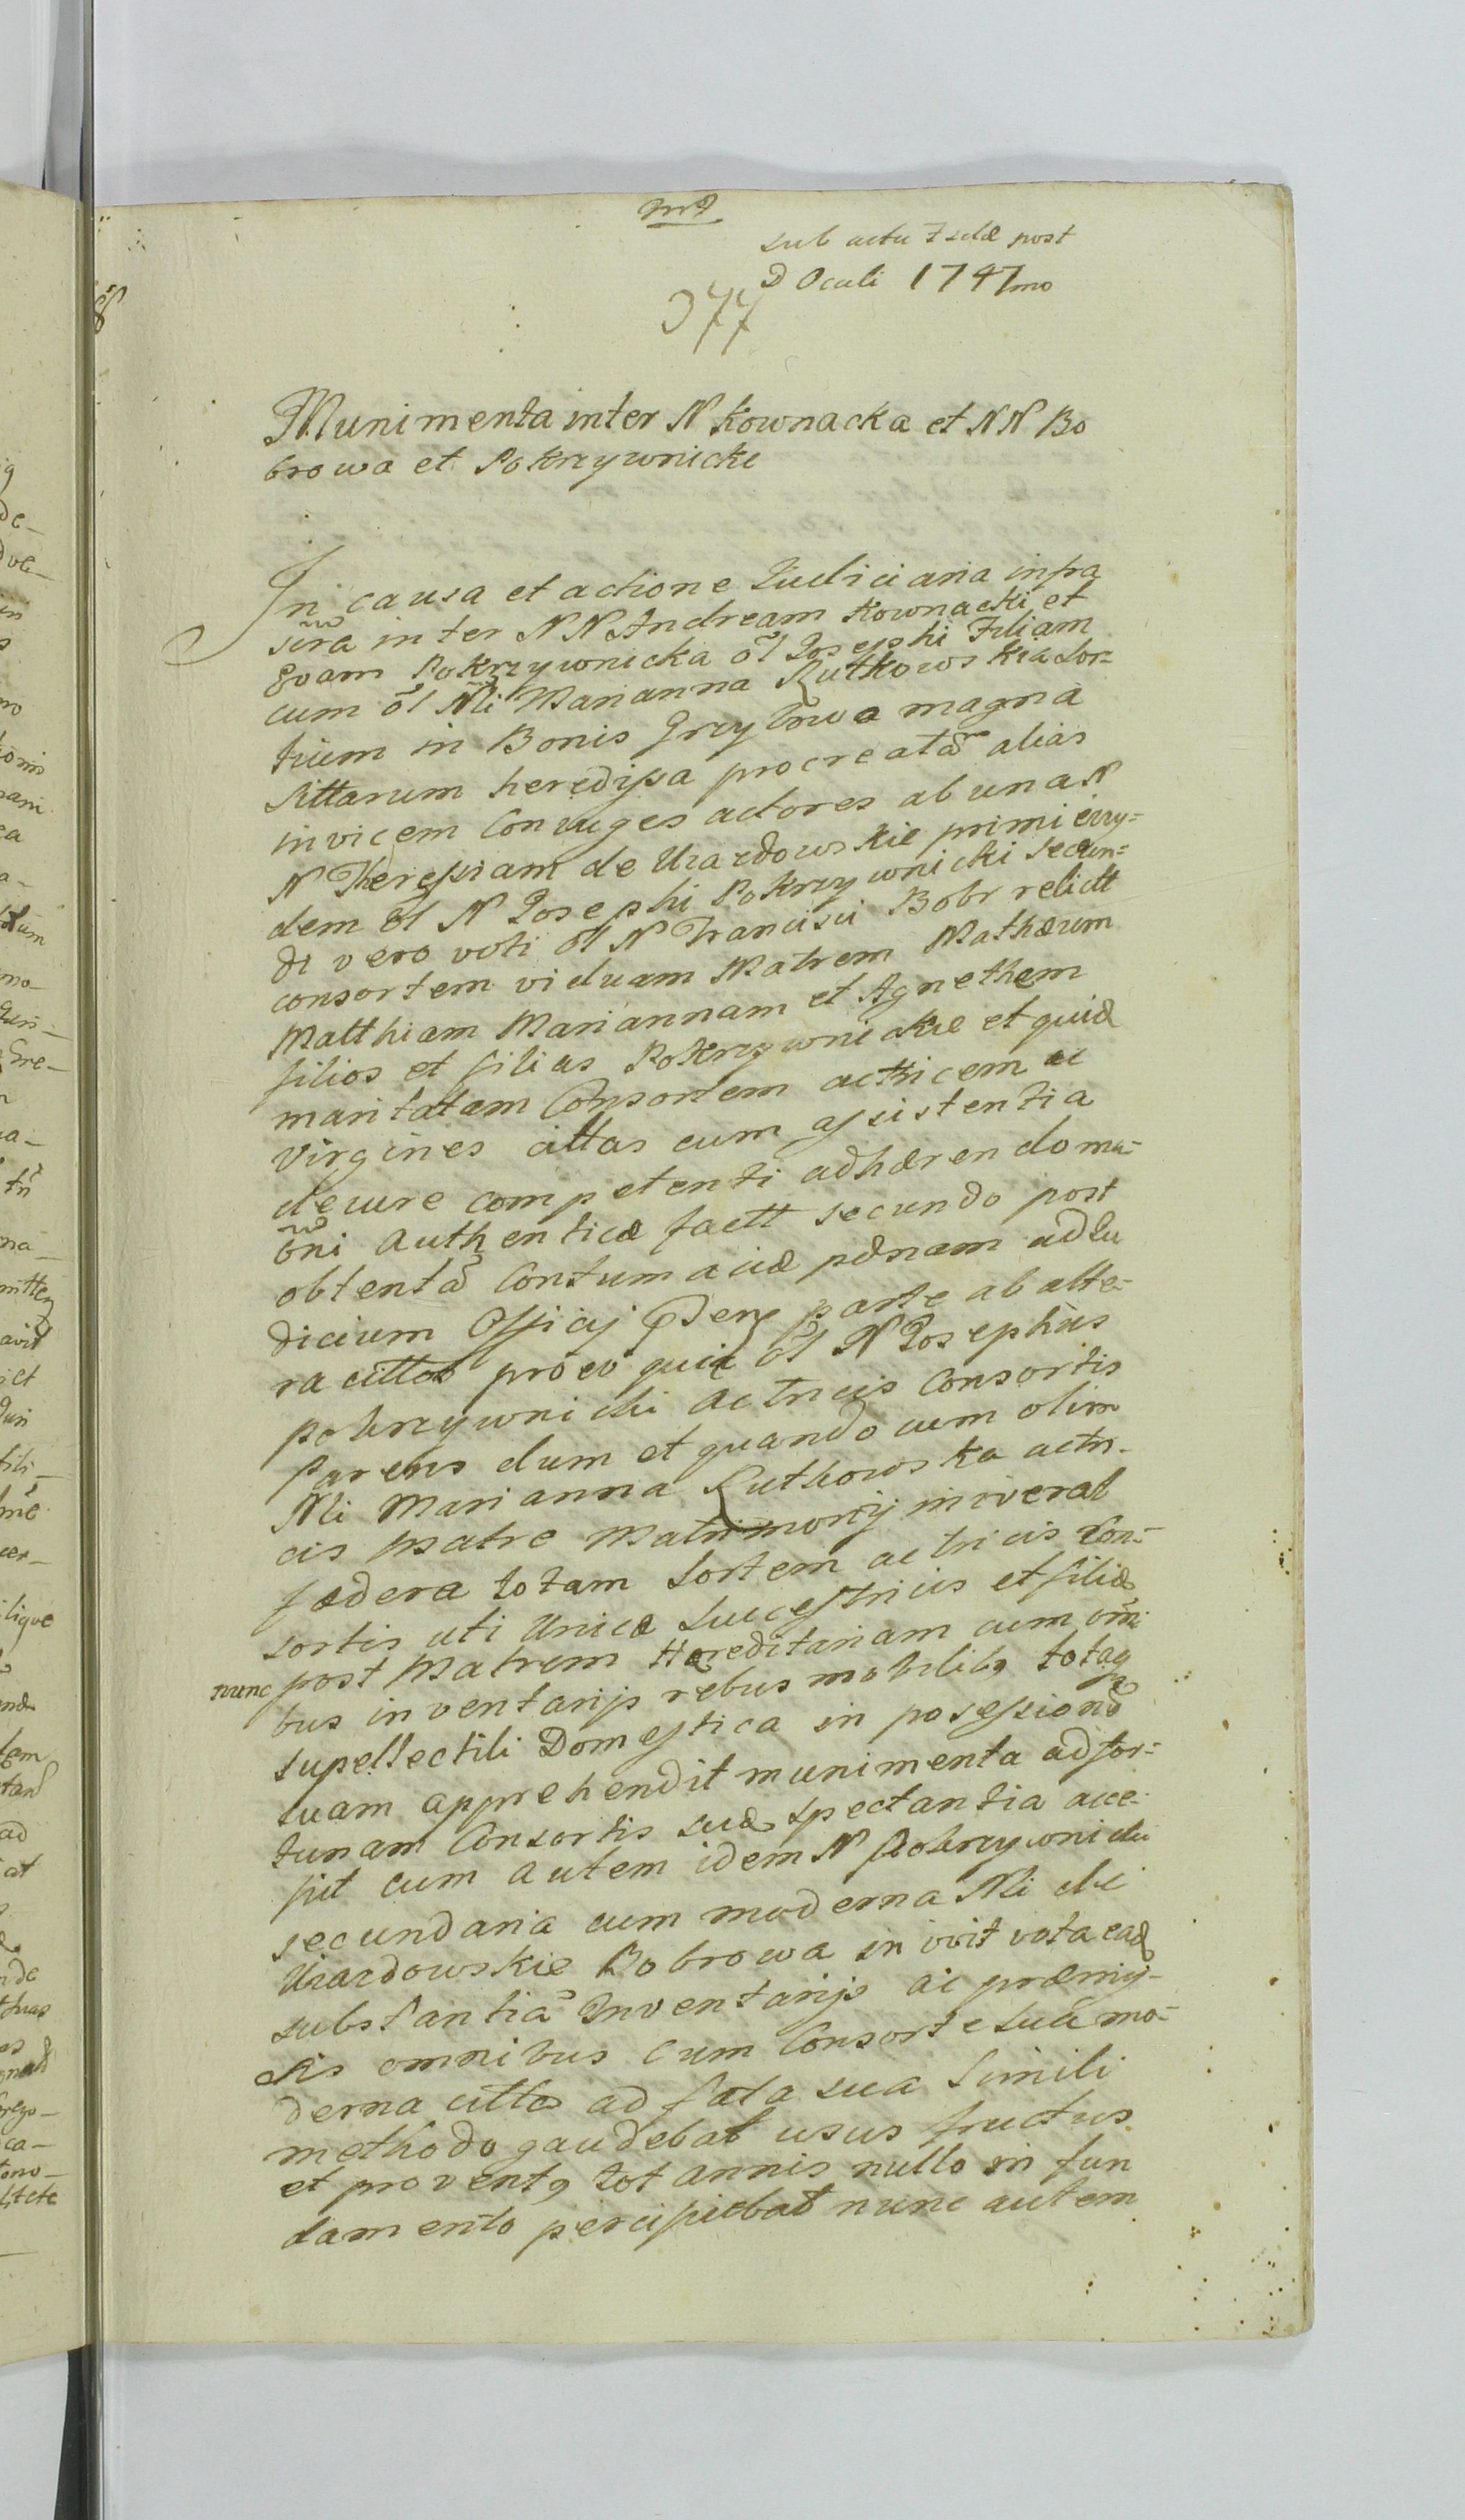 sub actu f 2dæ post
D Oculi 1747mo
377
Munimenta inter N Kownacka et NN Bo
browa et Pokrzywnickie
In causa et actione Iudiciaria infra
inter NN Andream Kownacki et
Evam Pokrzywnicka ol Josephi Filiam
cum ol Nli Marianna Rutkowska Sor-
tium in Bonis Grzybowo magna
sittarum heredissa procreatã alias
invicem Conjuges actores ab una N
N Theressiam de Urazdowskie primi eiq-
dem ol N Josephi Pokrzywnicki secun-
di vero voti ol N Francisci Bobr relictt
consortem viduam Matrem Mathæum
Matthiam Mariannam et Agnethem
filios et filias Pokrzywnickie et quid
maritatam Consortem actricem ac
virgines cittas cum assistentia
de iure competenti adhærendo mu-
õni Authenticæ factt secundo post
obtentã Contumaciæ pænam ad Iu
dicium Officij parte ab alte-
ra cittos pro eo quia ol N Josephus
Pokrzywnicki Actricis Consortis
Parens dum et quando cum olim
Nli Marianna Rutkowska actri-
cis Matre Matrimonij iniverat
fædera totam Sortem actricis Con-
sortis uti Unicæ Successtricis et filiæ
nunc post Matrem Hæreditariam cum omni
bus inventarijs rebus mobilibq totaq
supellectili Domestica in possessionẽ
suam apprehendit munimenta ad for-
tunam Consortis suæ spectantia acce-
pit cum autem idem N Pokrzywnicki
secundaria cum moderna Nli de
Urazdowskie Bobrowa inivit vota ead
substantiã Inventarijs ac præmis-
sis omnibus cum Consorte sua mo-
derna citta ad fata sua simili
methodo gaudebat usus fructus
et proventq tot annis nullo in fun
damento percipiebat nunc autem